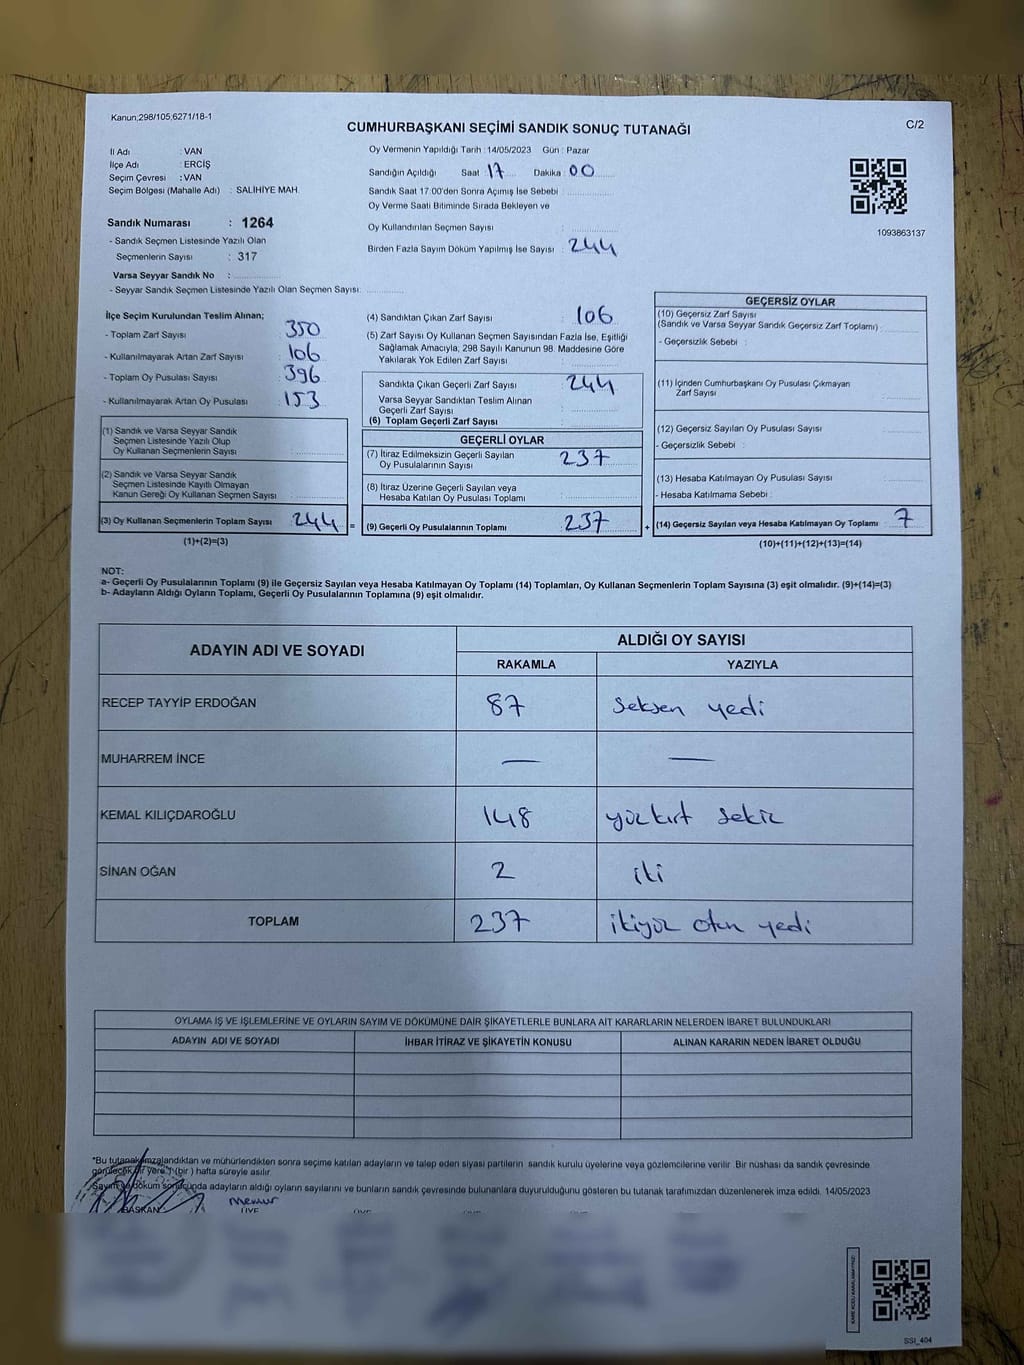 Kanun,298/105,6271/18-1
C/2
CUMHURBAŞKANI SEÇİMİ SANDIK SONUÇ TUTANAĞI
İl Adı : VAN
İlçe Adı : ERCİŞ
Seçim Çevresi : VAN
Seçim Bölgesi (Mahalle Adı) : SALİHİYE MAH.
Sandık Numarası : 1264
- Sandık Seçmen Listesinde Yazılı Olan
Seçmenlerin Sayısı : 317
Varsa Seyyar Sandık No :
- Seyyar Sandık Seçmen Listesinde Yazılı Olan Seçmen Sayısı:
Oy Vermenin Yapıldığı Tarih : 14/05/2023 Gün : Pazar
Sandığın Açıldığı Saat 17 Dakika 00
Sandık Saat 17:00'den Sonra Açımış İse Sebebi :
Oy Verme Saati Bitiminde Sırada Bekleyen ve
Oy Kullandırılan Seçmen Sayısı :
Birden Fazla Sayım Döküm Yapılmış İse Sayısı : 244
1093863137
İlçe Seçim Kurulundan Teslim Alınan;
- Toplam Zarf Sayısı : 350
- Kullanılmayarak Artan Zarf Sayısı : 106
- Toplam Oy Pusulası Sayısı : 396
- Kullanılmayarak Artan Oy Pusulası : 153
(1) Sandık ve Varsa Seyyar Sandık
Seçmen Listesinde Yazılı Olup
Oy Kullanan Seçmenlerin Sayısı :
(2) Sandık ve Varsa Seyyar Sandık
Seçmen Listesinde Kayıtlı Olmayan
Kanun Gereği Oy Kullanan Seçmen Sayısı :
(3) Oy Kullanan Seçmenlerin Toplam Sayısı 244 =
(1)+(2)=(3)
(4) Sandıktan Çıkan Zarf Sayısı : 106
(5) Zarf Sayısı Oy Kullanan Seçmen Sayısından Fazla İse, Eşitliği
Sağlamak Amacıyla, 298 Sayılı Kanunun 98. Maddesine Göre
Yakılarak Yok Edilen Zarf Sayısı :
Sandıkta Çıkan Geçerli Zarf Sayısı : 244
Varsa Seyyar Sandıktan Teslim Alınan
Geçerli Zarf Sayısı :
(6) Toplam Geçerli Zarf Sayısı :
GEÇERLİ OYLAR
(7) İtiraz Edilmeksizin Geçerli Sayılan
Oy Pusulalarının Sayısı : 237
(8) İtiraz Üzerine Geçerli Sayılan veya
Hesaba Katılan Oy Pusulası Toplamı :
(9) Geçerli Oy Pusulalarının Toplamı : 237 +
GEÇERSİZ OYLAR
(10) Geçersiz Zarf Sayısı
(Sandık ve Varsa Seyyar Sandık Geçersiz Zarf Toplamı) :
- Geçersizlik Sebebi :
(11) İçinden Cumhurbaşkanı Oy Pusulası Çıkmayan
Zarf Sayısı :
(12) Geçersiz Sayılan Oy Pusulası Sayısı :
- Geçersizlik Sebebi :
(13) Hesaba Katılmayan Oy Pusulası Sayısı :
- Hesaba Katılmama Sebebi :
(14) Geçersiz Sayılan veya Hesaba Katılmayan Oy Toplamı : 7
(10)+(11)+(12)+(13)=(14)
NOT:
a- Geçerli Oy Pusulalarının Toplamı (9) ile Geçersiz Sayılan veya Hesaba Katılmayan Oy Toplamı (14) Toplamları, Oy Kullanan Seçmenlerin Toplam Sayısına (3) eşit olmalıdır. (9)+(14)=(3)
b- Adayların Aldığı Oyların Toplamı, Geçerli Oy Pusulalarının Toplamına (9) eşit olmalıdır.
ADAYIN ADI VE SOYADI ALDIĞI OY SAYISI
RAKAMLA YAZIYLA
RECEP TAYYİP ERDOĞAN 87 seksen yedi
MUHARREM İNCE — —
KEMAL KILIÇDAROĞLU 148 yüzkırk sekiz
SİNAN OĞAN 2 iki
TOPLAM 237 ikiyüz otuz yedi
OYLAMA İŞ VE İŞLEMLERİNE VE OYLARIN SAYIM VE DÖKÜMÜNE DAİR ŞİKAYETLERLE BUNLARA AİT KARARLARIN NELERDEN İBARET BULUNDUKLARI
ADAYIN ADI VE SOYADI İHBAR İTİRAZ VE ŞİKAYETİN KONUSU ALINAN KARARIN NEDEN İBARET OLDUĞU
*Bu tutanak imzalandıktan ve mühürlendikten sonra seçime katılan adayların ve talep eden siyasi partilerin sandık kurulu üyelerine veya gözlemcilerine verilir. Bir nüshası da sandık çevresinde
görülecek bir yere 1 (bir ) hafta süreyle asılır.
Sayım ve döküm sonucunda adayların aldığı oyların sayılarını ve bunların sandık çevresinde bulunanlara duyurulduğunu gösteren bu tutanak tarafımızdan düzenlenerek imza edildi. 14/05/2023
memur
BAŞKAN ÜYE
SSI_404